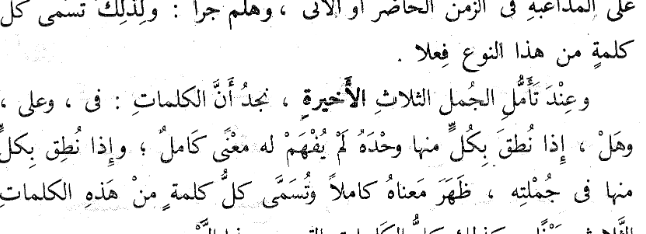 على المداعبة فى الزمن الحاضر أو الآتى ، وهلم جرا : ولِذلِكَ تسمى كل
كلمةٍ من هذا النوع فِعلا .
وعِنْدَ تَأَمُّلِ الجُمل الثلاث الأَخيرةِ ، نجدُ أَنَّ الكلماتِ : فى ، وعلى ،
وهَلْ ، إِذا نُطقَ بِكُلٍّ منها وحْدَهُ لَمْ يُفْهَمْ له معْنًى كَاملٌ ؛ وإِذا نُطِق بِكلٍّ
منها فى جُمْلتِه ، ظَهَرَ مَعناهُ كاملاً وتُسَمَّى كلُّ كلمةٍ منْ هَذهِ الكلماتِ